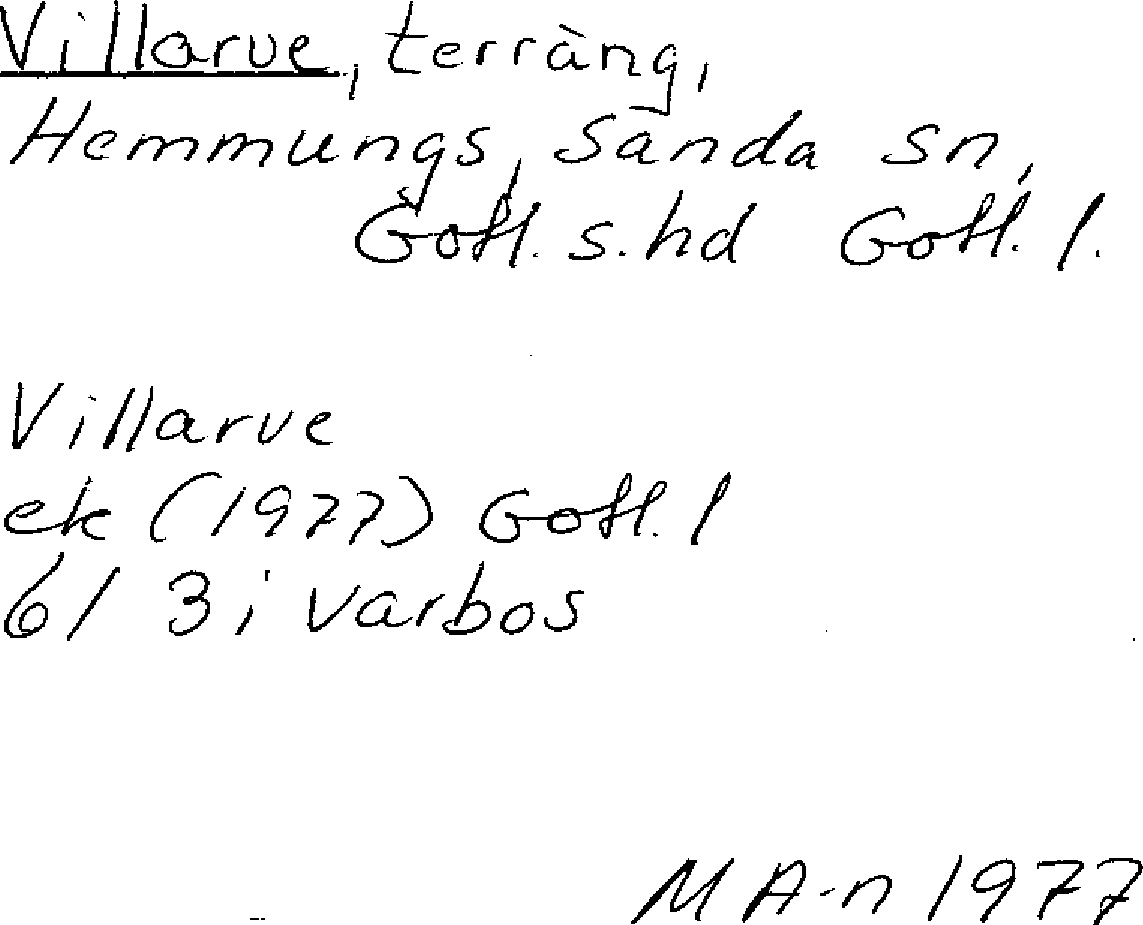 Villarve, terräng,
Hemmungs, Sanda sn,
Gotl. s. hd Gotl. l.
Villarve
ek (1977) Gotl. l
6I 3i Varbos
M A-n 1977